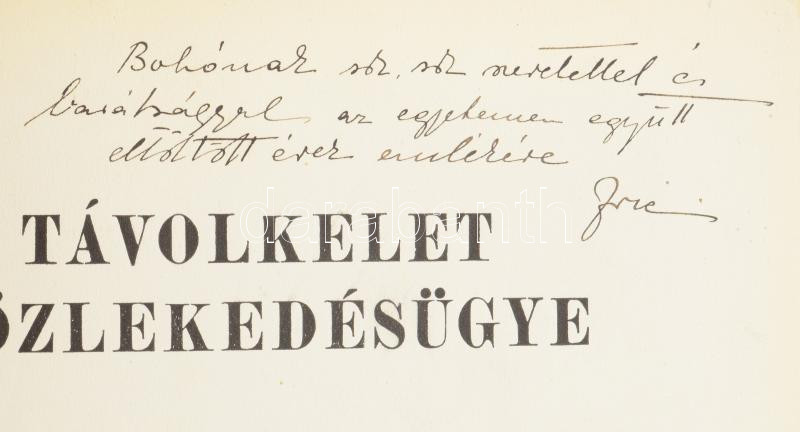 Bohónak sok, sok szeretettel és
barátsággal az egyetemen együtt
eltöltött évek emlékére
Frici
TÁVOLKELET
ÖZLEKEDÉSÜGYE
darabanth